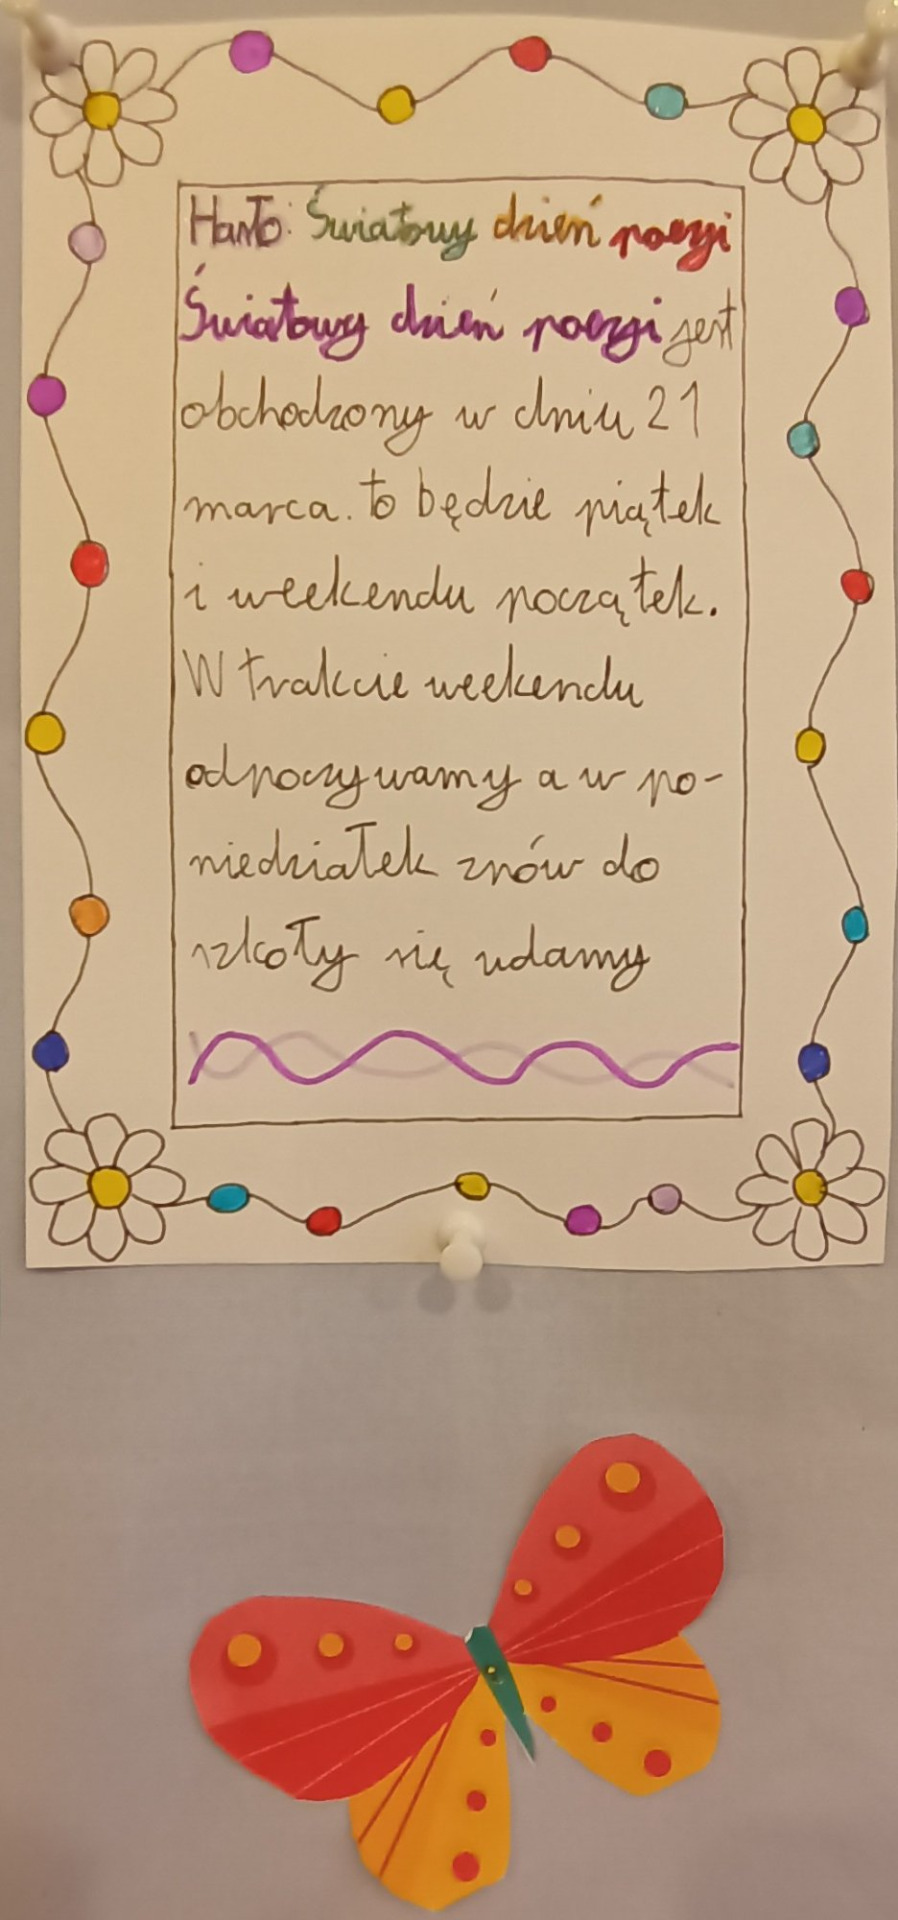 Hasło: Światowy dzień poezji
Światowy dzień poezji jest
obchodzony w dniu 21
marca. to będzie piątek
i weekendu początek.
W trakcie weekendu
odpoczywamy a w po-
niedziałek znów do
szkoły się udamy